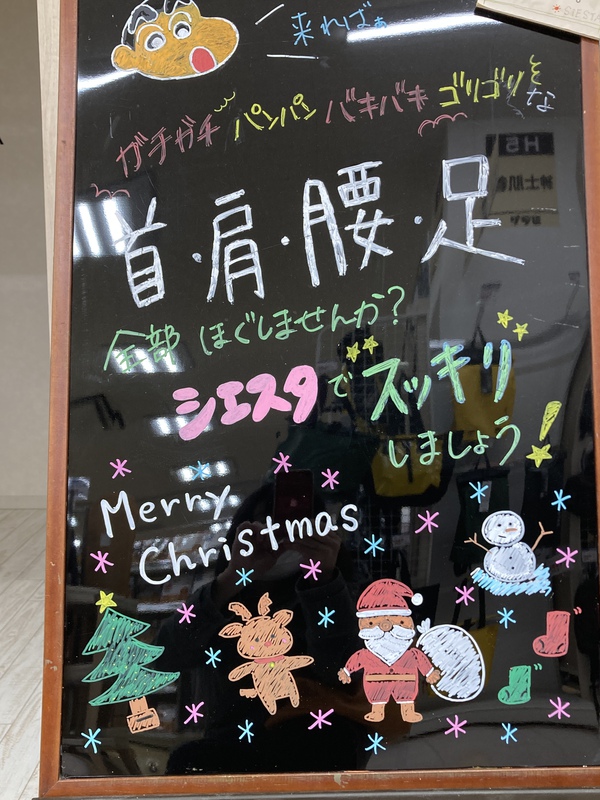 SIESTA
来ればぁ
ガチガチ パンパン バキバキ ゴリゴリな
首・肩・腰・足
全部 ほぐしませんか?
シエスタで スッキリ
しましょう!
Merry
Christmas